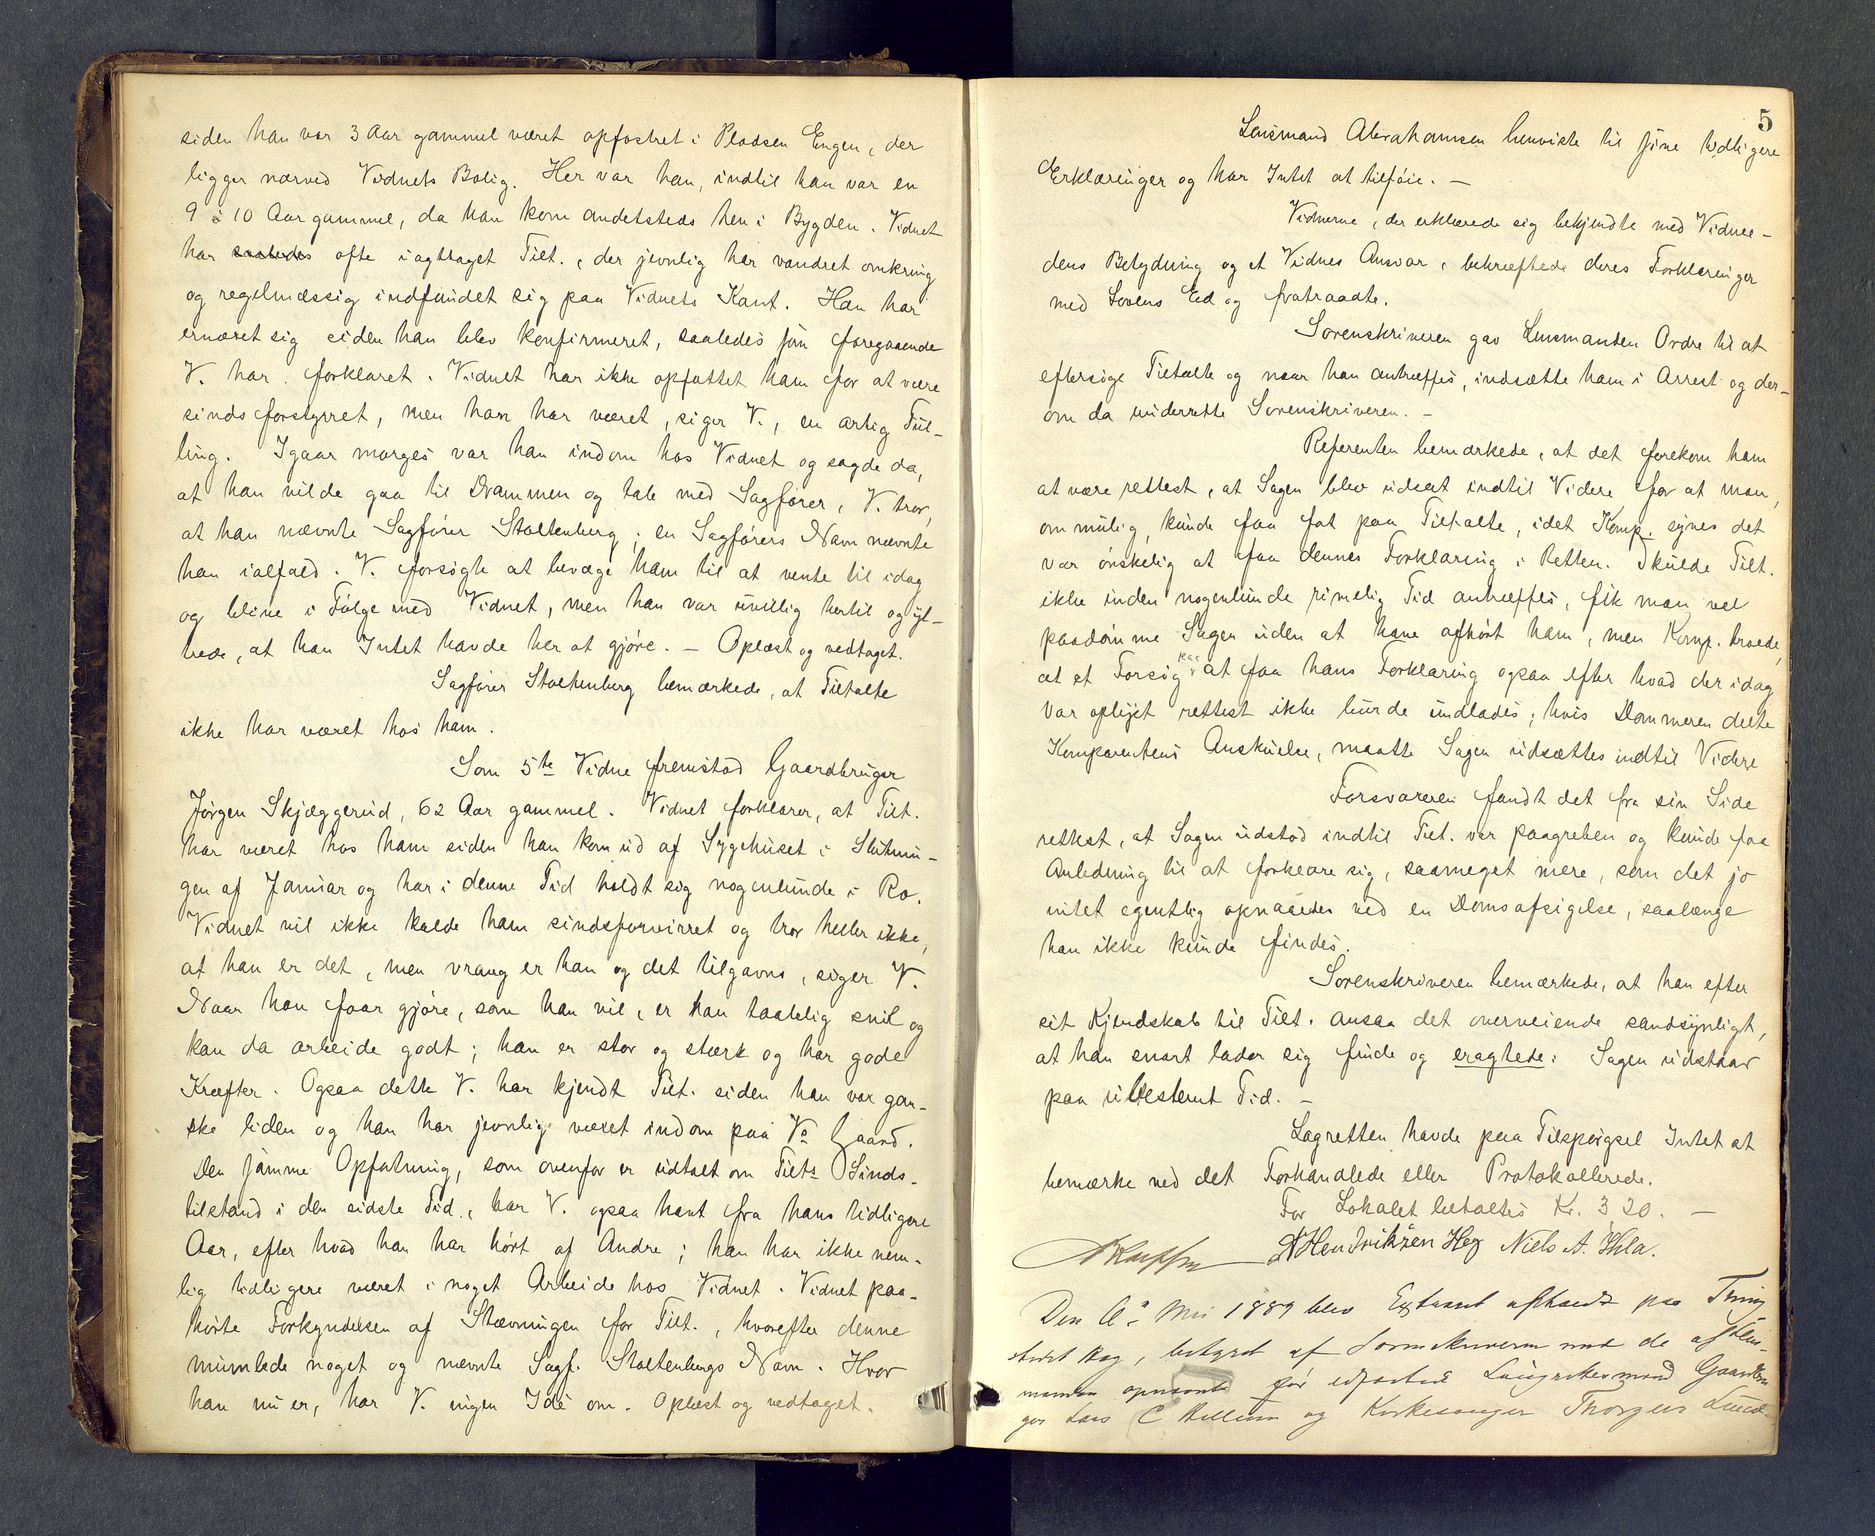 siden han var 3 Aar gammel været opfostret i Pladsen Engen, der
ligger nærved Vidnets Bolig. Her var han, indtil han var en
9 à 10 Aar gammel, da han kom andetsteds hen i Bygden. Vidnet
har saaledes ofte iagttaget Tilt., der jevnlig har vandret omkring
og regelmæssig indfundet sig paa Vidnets Kant. Han har
ernæret sig siden han blev konfirmeret, saaledes som foregaaende
V. har forklaret. Vidnet har ikke opfattet ham for at være
sindsforstyrret, men han har været, siger V., en artig Tul-
ling. Igaar morges var han indom hos Vidnet og sagde da,
at han vilde gaa til Drammen og tale med Sagfører, V. tror,
at han nævnte Sagfører Stoltenberg; en Sagførers Navn nævnte
han ialfald. V. forsøgte at bevæge ham til at vente til idag
og blive i Følge med Vidnet, men han var uvillig hertil og yt-
rede, at han Intet havde her at gjøre. — Oplæst og vedtaget.
Sagfører Stoltenberg bemærkede, at Tiltalte
ikke har været hos ham.
Som 5te Vidne fremstod Gaardbruger
Jørgen Skjæggerud, 62 Aar gammel. Vidnet forklarer, at Tilt.
har været hos ham siden han kom ud af Sygehuset i Slutnin-
gen af Januar og har i denne Tid holdt sig nogenlunde i Ro.
Vidnet vil ikke kalde ham sindsforvirret og tror heller ikke,
at han er det, men vrang er han og det tilgavns, siger V.
Naar han faar gjøre, som han vil, er han taalelig snil og
kan da arbeide godt; han er stor og stærk og har gode
Kræfter. Ogsaa dette V. har kjendt Tilt. siden han var gan-
ske liden og han har jevnlig været indom paa Vs Gaard.
Den samme Opfatning, som ovenfor er udtalt om Tilts Sinds-
tilstand i den sidste Tid, har V. ogsaa havt fra hans tidligere
Aar, efter hvad han har hørt af Andre; han har ikke nem-
lig tidligere været i noget Arbeide hos Vidnet. Vidnet paa-
hørte Forkyndelsen af Stævningen for Tilt., hvorefter denne
mumlede noget og nævnte Sagf. Stoltenbergs Navn. Hvor
han nu er, har V. ingen Idé om. Oplæst og vedtaget.
5
Lensmand Abrahamsen henviste til sine tidligere
Erklæringer og har Intet at tilføie. —
Vidnerne, der erklærede sig bekjendte med Vidne-
dens Betydning og et Vidnes Ansvar, bekræftede deres Forklaringer
med Lovens Ed og fratraadte.
Sorenskriveren gav Lensmanden Ordre til at
eftersøge Tiltalte og naar han antræffes, indsætte ham i Arrest og der-
om da underrette Sorenskriveren. —
Referenten bemærkede, at det forekom ham
at være rettest, at Sagen blev udsat indtil Videre for at man,
om mulig, kunde faa fat paa Tiltalte, idet Komp. synes det
var ønskelig at faa dennes Forklaring i Retten. Skulde Tilt.
ikke inden nogenlunde rimelig Tid antræffes, fik man vel
paadømme Sagen uden at have afhørt ham, men Komp. troede,
at et Forsøg paa at faa hans Forklaring ogsaa efter hvad der idag
var oplyst rettest ikke burde undlades; hvis Dommeren delte
Komparentens Anskuelse, maatte Sagen udsættes indtil Videre
Forsvareren fandt det fra sin Side
rettest, at Sagen udstod indtil Tilt. var paagreben og kunde faa
Anledning til at forklare sig, saameget mere, som det jo
intet egentlig opnaaedes ved en Domsafsigelse, saalænge
han ikke kunde findes.
Sorenskriveren bemærkede, at han efter
sit Kjendskab til Tilt. ansaa det overveiende sandsynligt,
at han snart lader sig finde og eragtede: Sagen udstaar
paa ubestemt Tid. —
Lagretten havde paa Tilspørgsel Intet at
bemærke ved det Forhandlede eller Protokollerede.
For Lokalet betaltes Kr. 3 20. —
A Hendriksen Heg Niels A. Ihla.
Den Mai 1889 blev Extraret afholdt paa Thing
stedet Heg, betjent af Sorenskriveren med de af Lens-
manden opnævnte før edfæstede Laugrettesmænd Gaardbru
ger Lars C Hellum og Kirkesanger Thorger Lund-